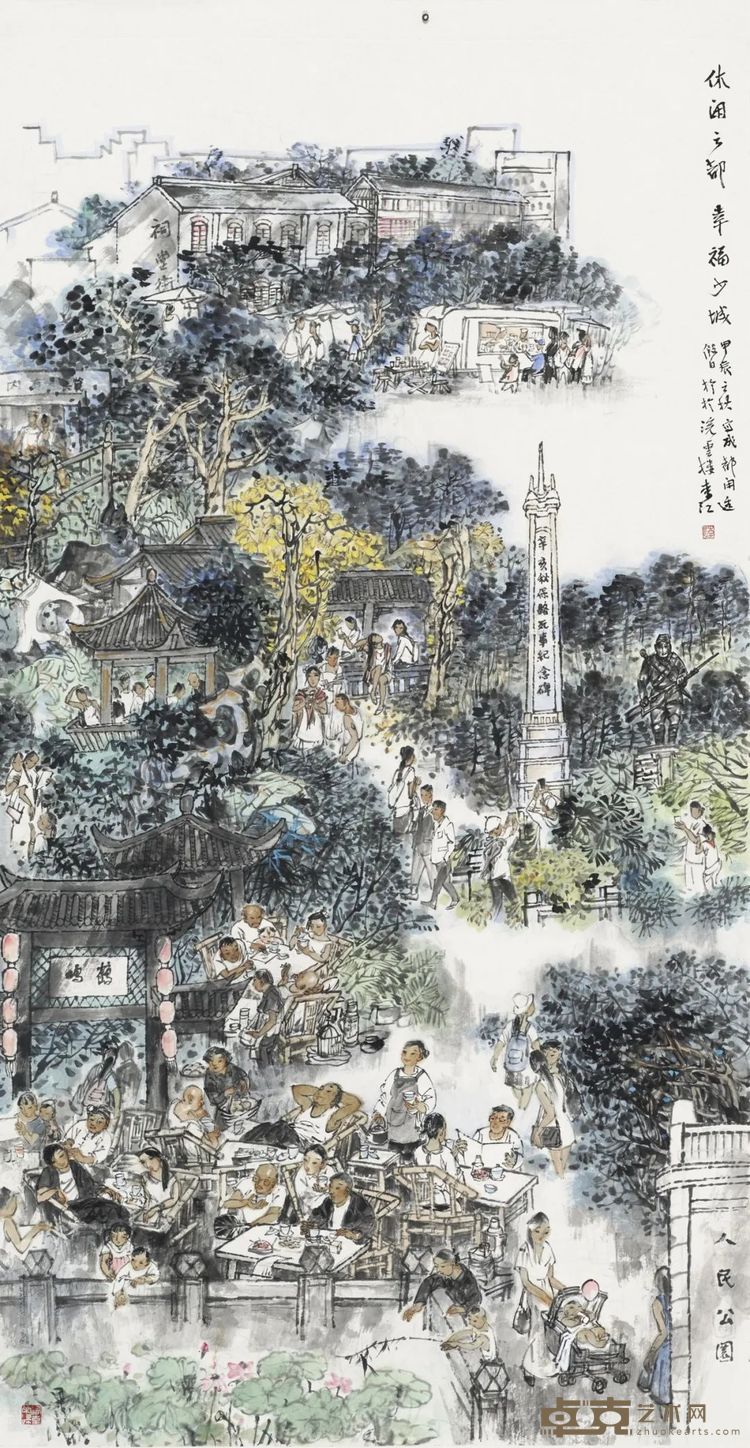 休闲之都 幸福少城
甲辰之秋写成都闲逸
于浣云楼李江
祠堂街
辛亥秋保路死事纪念碑
鹤鸣
人民公園
卓克艺术网
zhuokearts.com